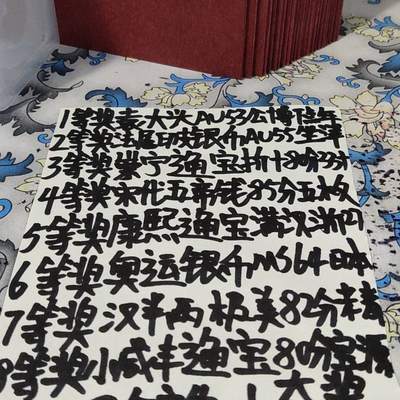 1等奖袁大头AU53公博
2等奖法属功好银币AU55坐洋
3等奖崇宁通宝折十80分33寸
4等奖宋代五帝钱85分五板
5等奖康熙通宝满汉浙四
6等奖奥运银币MS64日本
7等奖汉半两极美82分
8等奖小咸丰通宝80分宝源
大奖